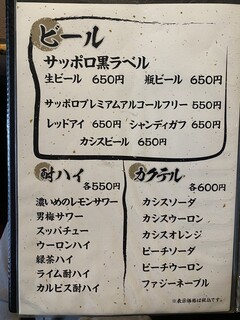 ビール
サッポロ黒ラベル
生ビール 650円 瓶ビール 650円
サッポロプレミアムアルコールフリー 550円
レッドアイ 650円 シャンディガフ 650円
カシスビール 650円
酎ハイ
各550円
濃いめのレモンサワー
男梅サワー
スッパチュー
ウーロンハイ
緑茶ハイ
ライム酎ハイ
カルピス酎ハイ
カクテル
各600円
カシスソーダ
カシスウーロン
カシスオレンジ
ピーチソーダ
ピーチウーロン
ファジーネーブル
※表示価格は税込です。